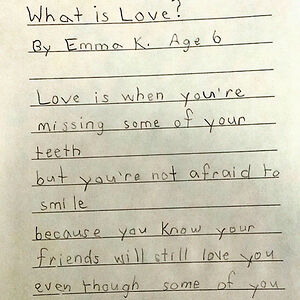 What is Love?
By Emma K. Age 6
Love is when you're
missing some of your
teeth
but you're not afraid to
smile
because you know your
friends will still love you
even though some of you